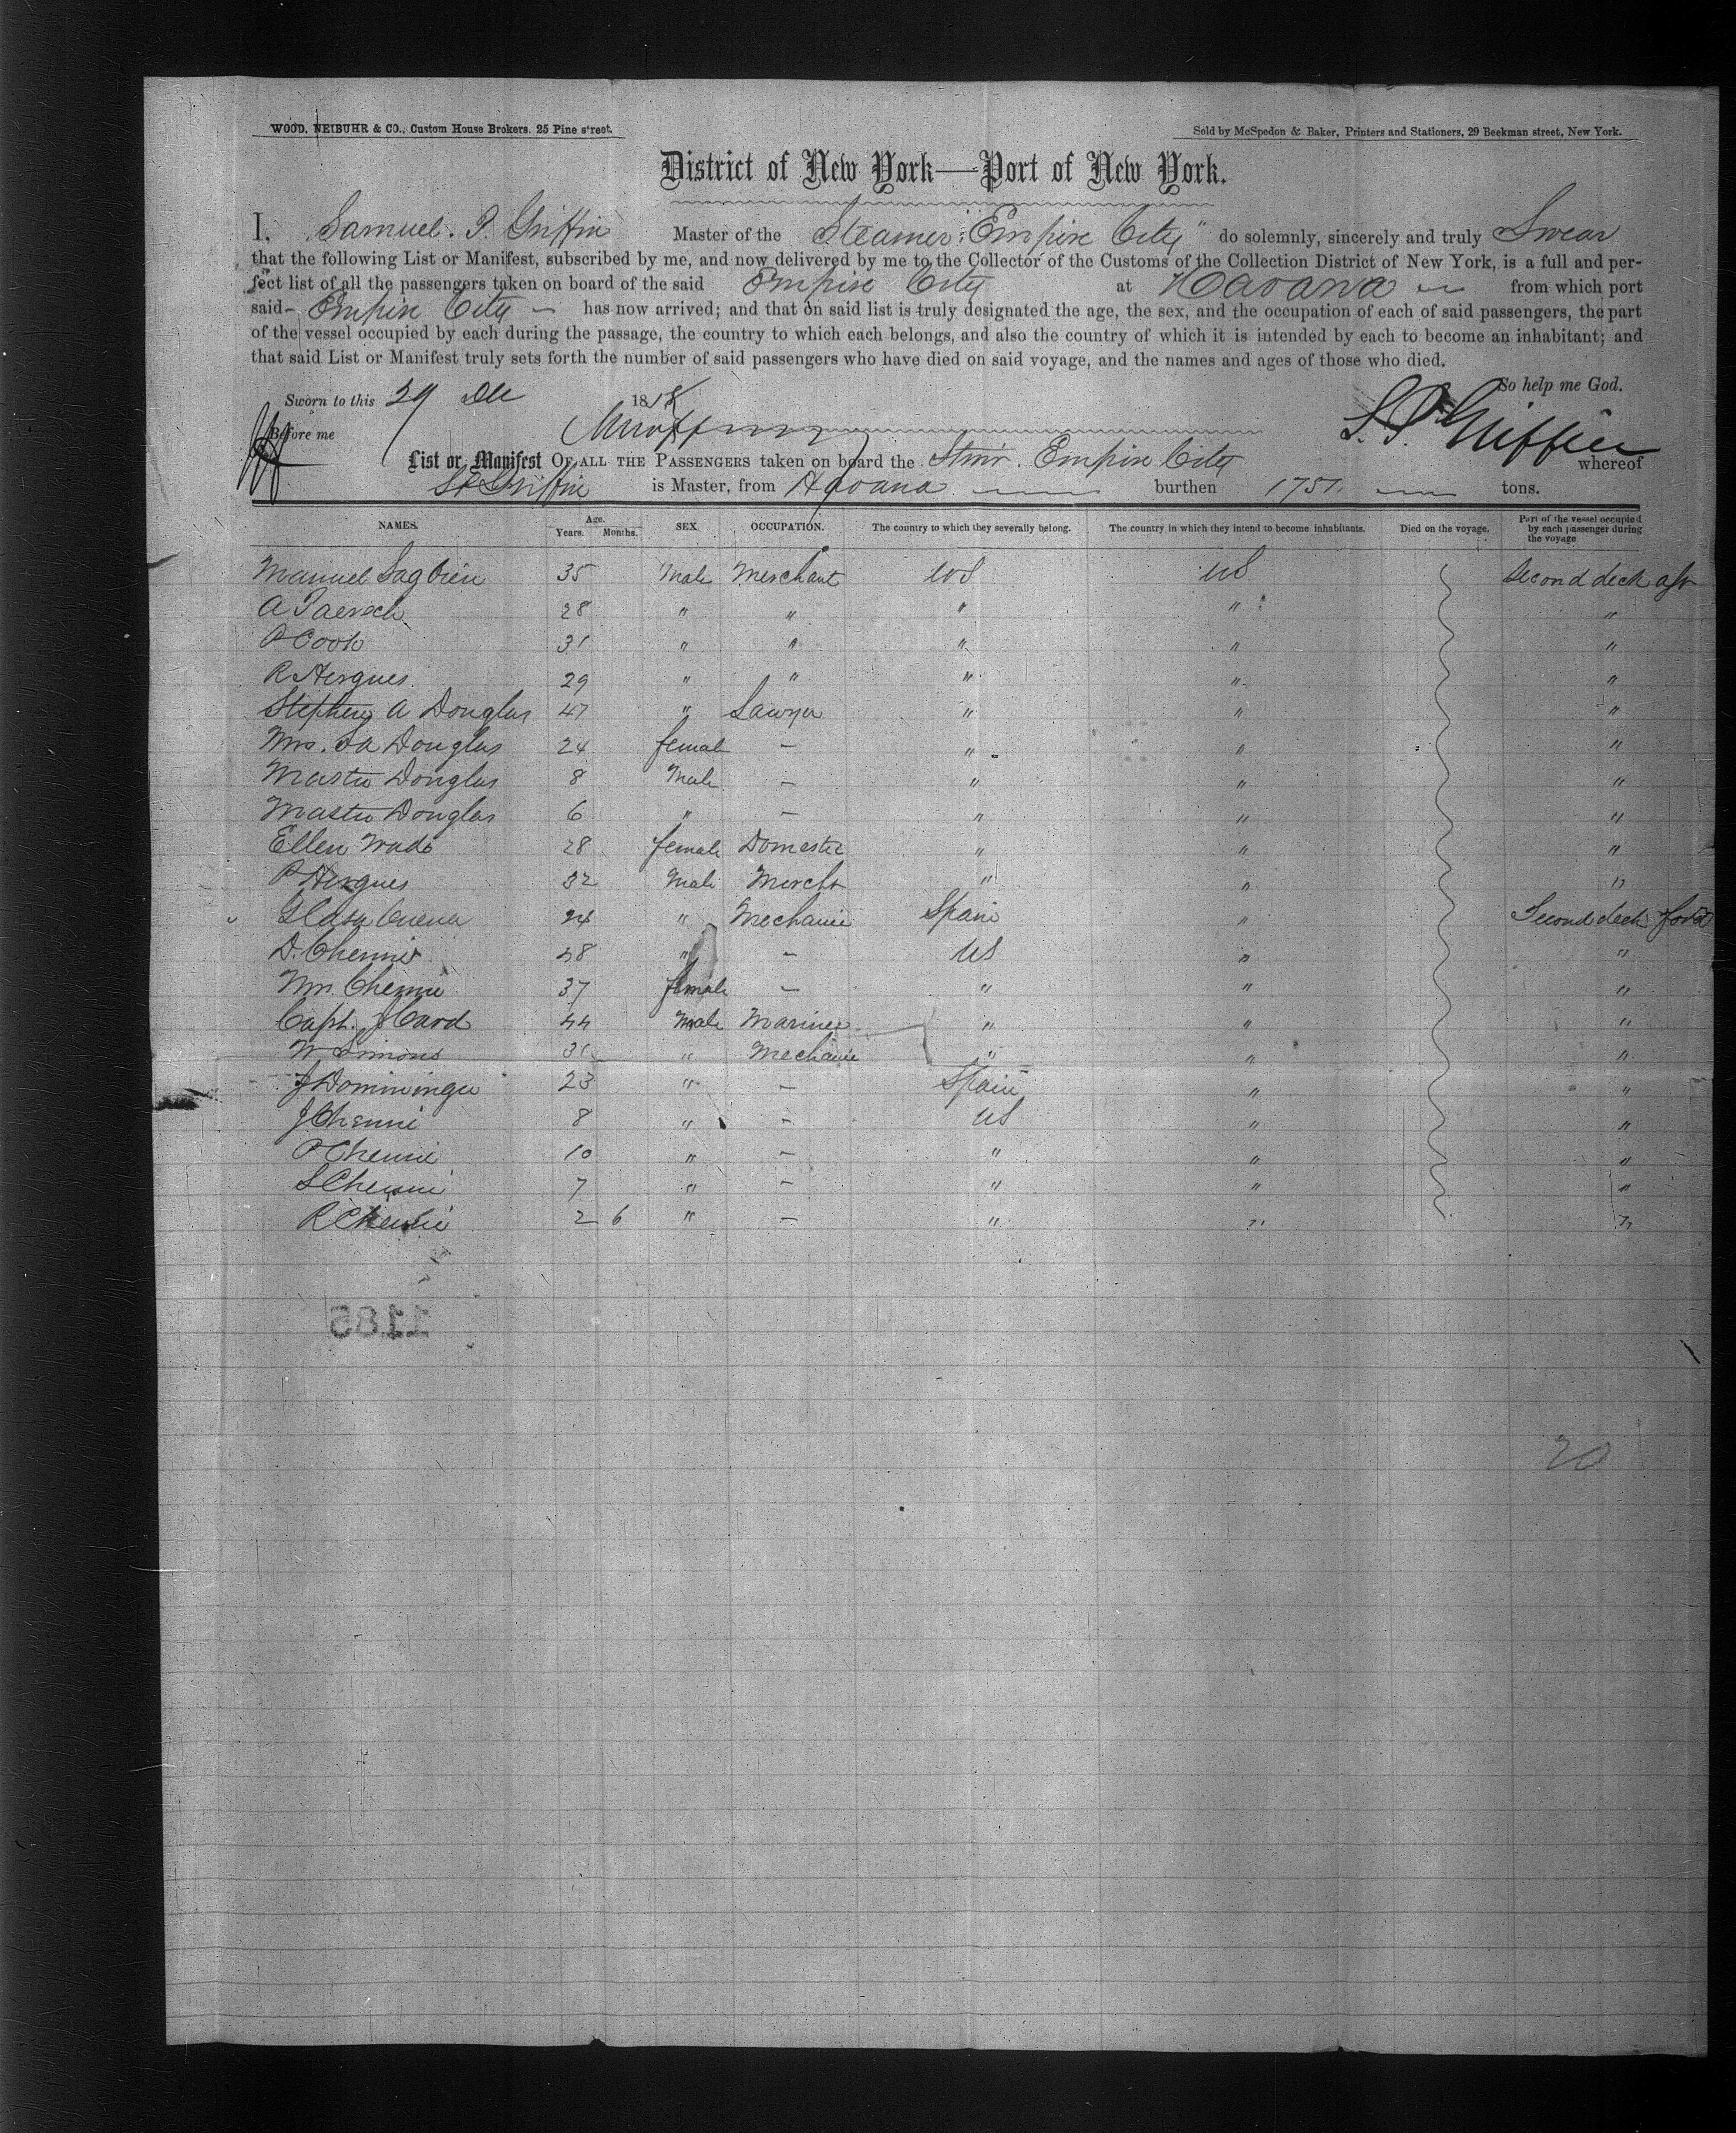 WOOD, NEIBUHR & CO., Custom House Brokers, 25 Pine street.
Sold by McSpedon & Baker, Printers and Stationers, 29 Beekman street, New York.
District of New York—Port of New York.
I, Samuel. P. Griffin Master of the Steamer "Empire City" do solemnly, sincerely and truly Swear
that the following List or Manifest, subscribed by me, and now delivered by me to the Collector of the Customs of the Collection District of New York, is a full and per-
fect list of all the passengers taken on board of the said Empire City at Havana from which port
said Empire City has now arrived; and that on said list is truly designated the age, the sex, and the occupation of each of said passengers, the part
of the vessel occupied by each during the passage, the country to which each belongs, and also the country of which it is intended by each to become an inhabitant; and
that said List or Manifest truly sets forth the number of said passengers who have died on said voyage, and the names and ages of those who died.
So help me God.
Sworn to this 29 De 1858
Before me S. P. Griffin
List or Manifest OF ALL THE PASSENGERS taken on board the Stmr. Empire City whereof
S P Griffin is Master, from Havana burthen 1751. tons.
NAMES. Age. Years. Months. SEX. OCCUPATION. The country to which they severally belong. The country in which they intend to become inhabitants. Died on the voyage. Part of the vessel occupied by each passenger during the voyage
Manuel 35 Male Merchant US US Second deck aft
A 28 " " " " "
P Cook 31 " " " " "
R Hergues 29 " " " " "
Stephen A Douglas 47 " Lawyer " " "
Mrs. S A Douglas 24 female — " " "
Master Douglas 8 Male — " " "
Master Douglas 6 " — " " "
Ellen Wade 28 female Domestic " " "
P Hergues 32 Male Mercht " " "
24 " Mechanic Spain " Second deck ford
D. Chennie 48 " — US " "
Mrs. Chennie 37 female — " " "
Capt. J Card 44 Male Mariner " " "
W Simons 31 " Mechanic " " "
J Dominingue 23 " — Spain " "
J Chennie 8 " — US " "
P Chennie 10 " — " " "
S Chennie 7 " — " " "
R Chennie 2 6 " — " " "
1185
20